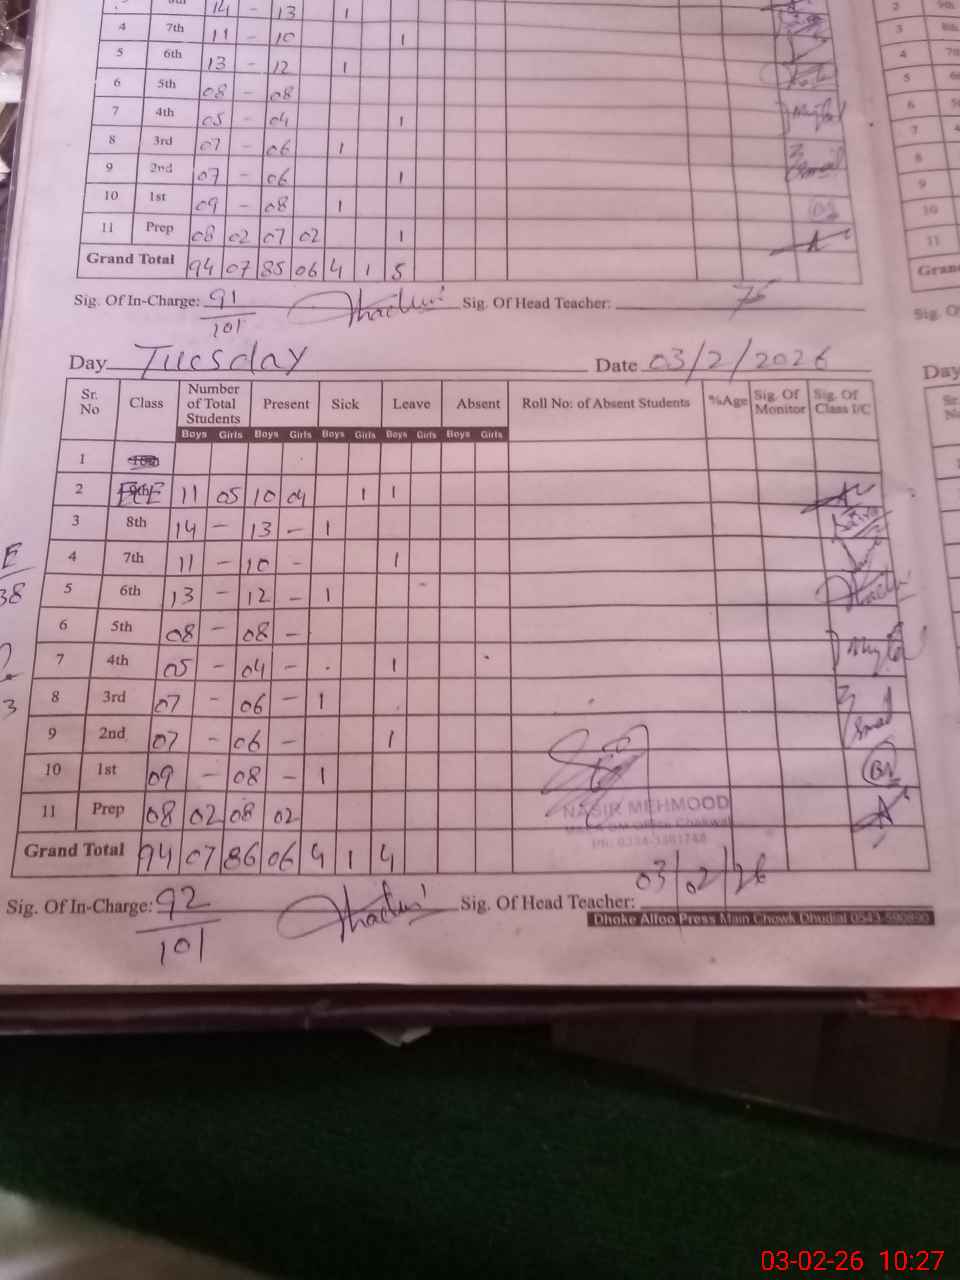 8th 14 - 13 1
4 7th 11 - 10 1
5 6th 13 - 12 1
6 5th 08 - 08
7 4th 05 - 04 1
8 3rd 07 - 06 1
9 2nd 07 - 06 1
10 1st 09 - 08 1
11 Prep 08 02 07 02 1
Grand Total 94 07 85 06 4 1 5
Sig. Of In-Charge: 91/101 Sig. Of Head Teacher:
Day Tuesday Date 03/2/2026
Sr. No Class Number of Total Students Present Sick Leave Absent Roll No: of Absent Students %Age Sig. Of Monitor Sig. Of Class I/C
Boys Girls Boys Girls Boys Girls Boys Girls Boys Girls
1
2 ECE 11 05 10 04 1 1
3 8th 14 - 13 - 1
4 7th 11 - 10 - 1
5 6th 13 - 12 - 1
6 5th 08 - 08 -
7 4th 05 - 04 - 1
8 3rd 07 - 06 - 1
9 2nd 07 - 06 - 1
10 1st 09 - 08 - 1
11 Prep 08 02 08 02
NASIR MEHMOOD
Grand Total 94 07 86 06 4 1 4
03/02/26
Sig. Of In-Charge: 92/101 Sig. Of Head Teacher:
Dhoke Alloo Press Main Chowk Dhudial 0543-590890
E
38
3
2 9th
3 8th
4 7th
5
6
7
8
9
10
11
Grand
Sig. Of
Day
Sr.
No
03-02-26 10:27